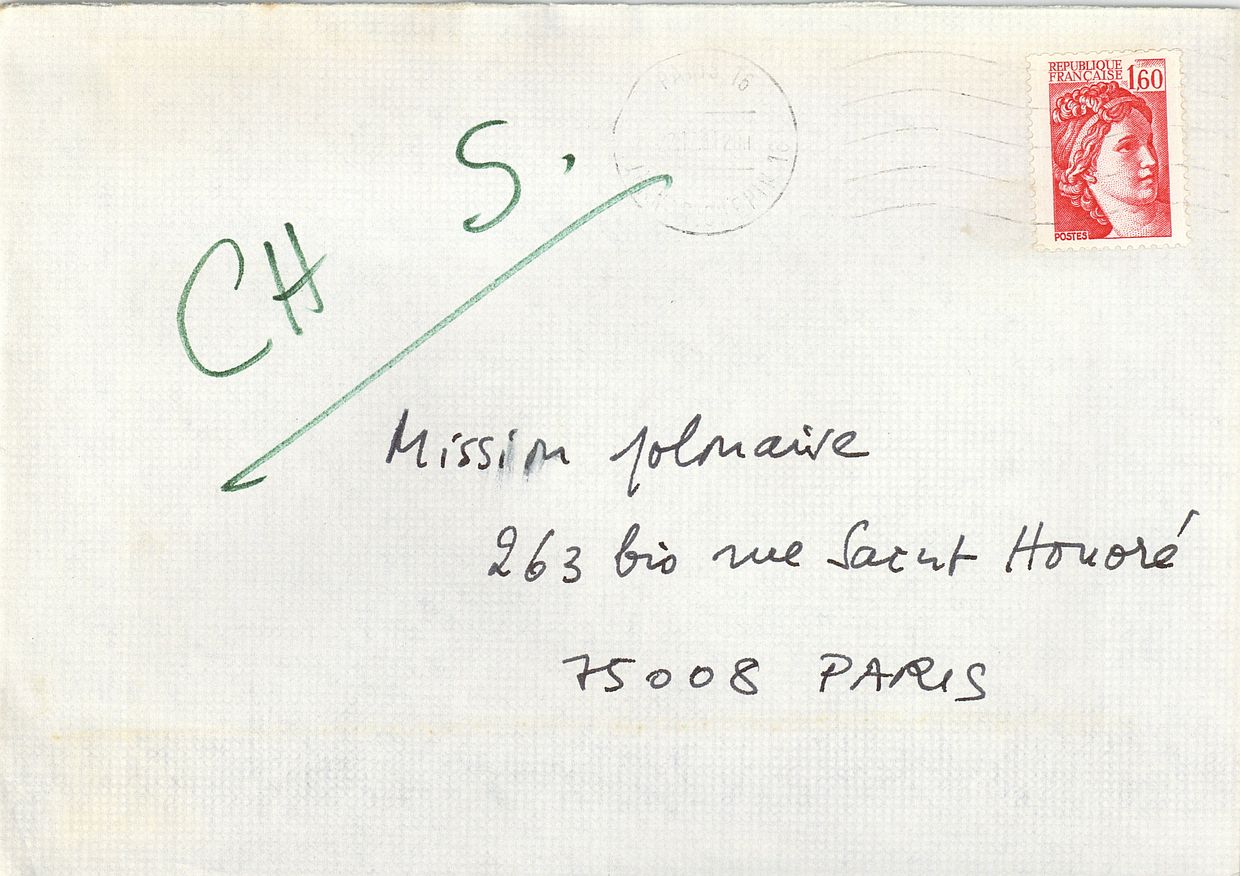 REPUBLIQUE
FRANÇAISE 1,60
POSTES
PARIS 16
CH S.
Mission polonaise
263 bis rue Saint Honoré
75008 PARIS